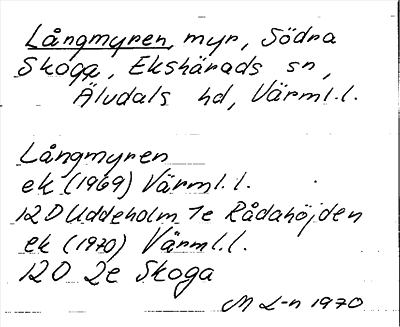 Långmyren, myr, Södra
Skoga, Ekshärads sn,
Äludals hd, Värml.l.
Långmyren
ek (1969) Värml.l.
12D Uddeholm 1e Rådahöjden
ek (1970) Värml.l.
12D 2e Skoga
M L-n 1970